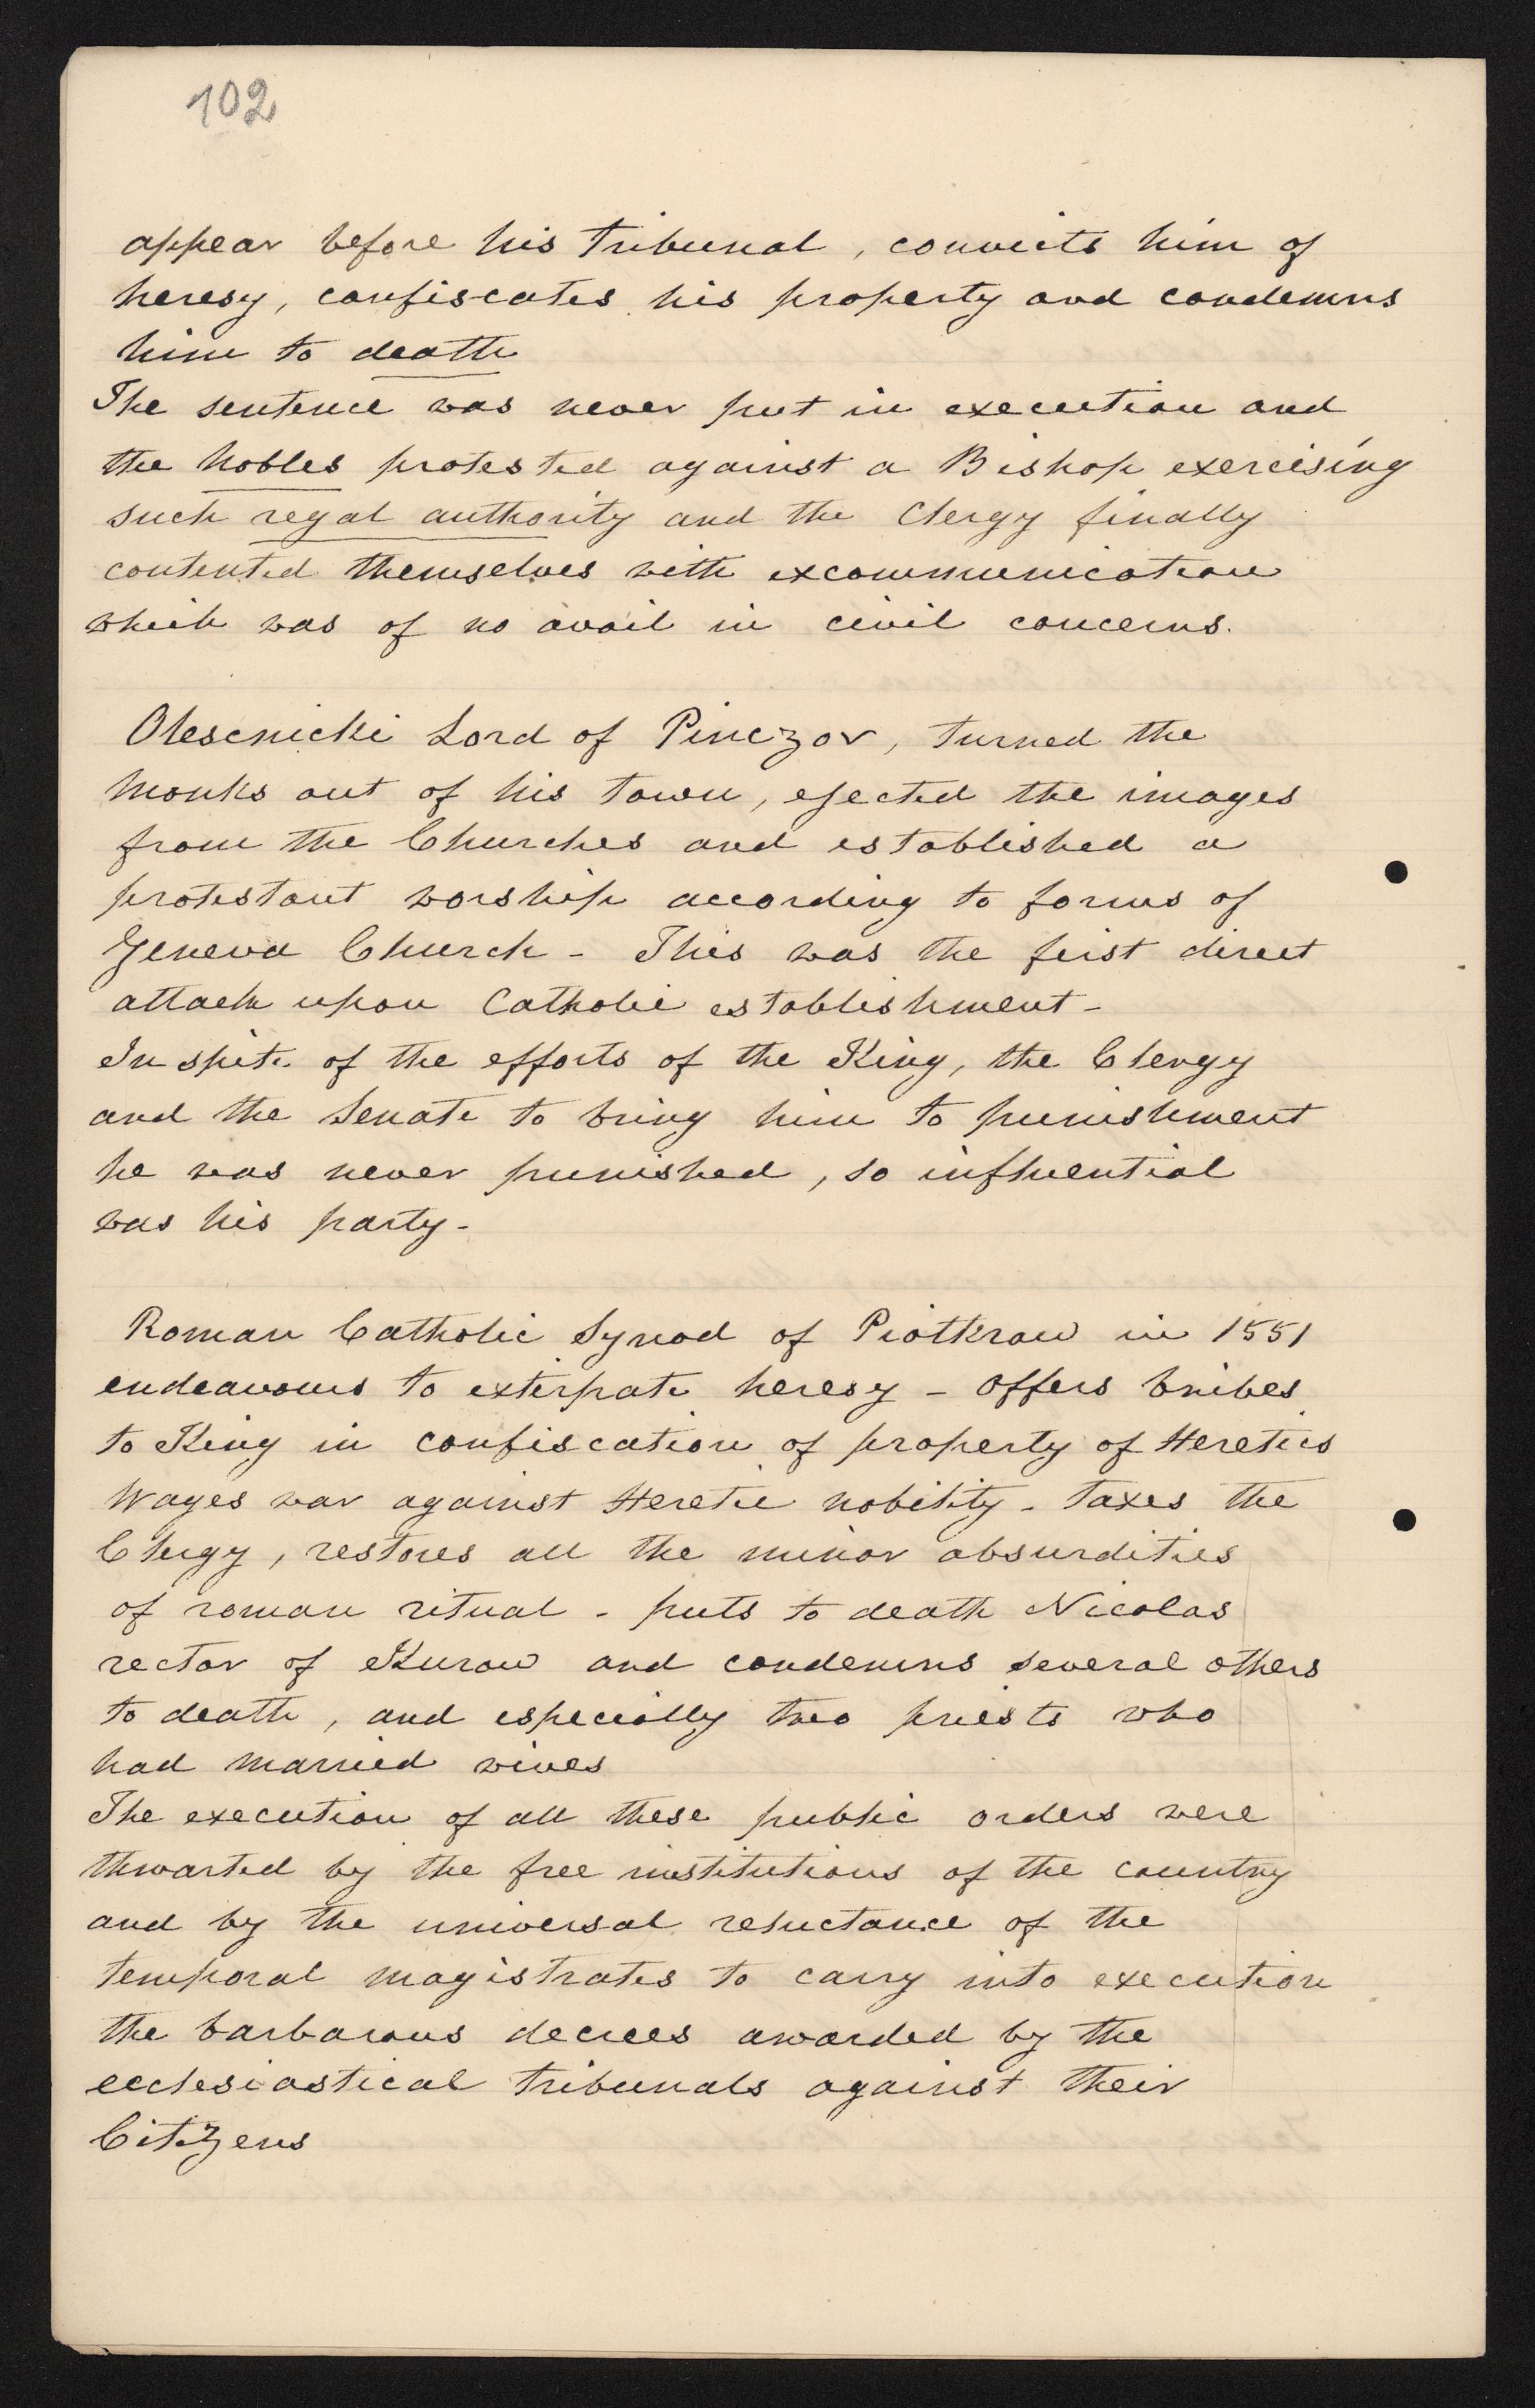 102
appear before his tribunal, convicts him of
heresy, confiscates his property and condemns
him to death
The sentence was never put in execution and
the Nobles protested against a Bishop exercising
such regal authority and the Clergy finally
contented themselves with excommunication
which was of no avail in civil concerns.
Olescnicki Lord of Pinczov, turned the
Monks out of his town, ejected the images
from the Churches and established a
protestant worship according to forms of
Geneva Church - This was the first direct
attack upon Catholic establishment -
In spite of the efforts of the King, the Clergy
and the Senate to bring him to punishment
he was never punished, so influential
was his party -
Roman Catholic Synod of Piotkrow in 1551
endeavours to exterpate heresy - offers bribes
to King in confiscation of property of Heretics
Wages war against Heretic nobility - Taxes the
Clergy, restores all the minor absurdities
of roman ritual - puts to death Nicolas
rector of Kurow and condemns several others
to death, and especially two priests who
had married wives
The execution of all these public orders were
thwarted by the free institutions of the country
and by the universal reluctance of the
temporal magistrates to carry into execution
the barbarous decrees awarded by the
ecclesiastical tribunals against their
Citizens